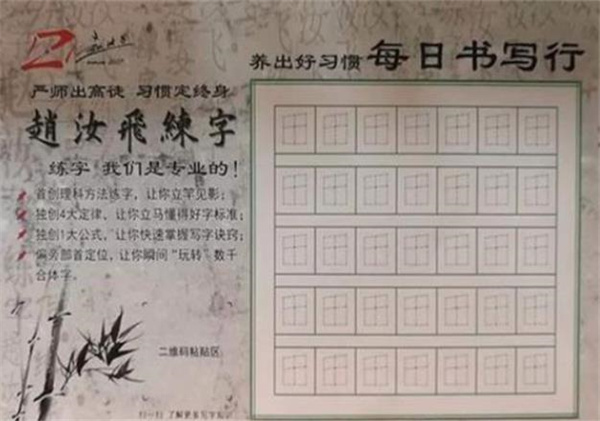 养出好习惯 每日书写行
严师出高徒 习惯定终身
趙汝飛練字
练字 我们是专业的!
首创理科方法练字,让你立竿见影;
独创4大定律、让你立马懂得好字标准;
独创1大公式,让你快速掌握写字诀窍;
偏旁部首定位,让你瞬间“玩转”数千
合体字。
二维码粘贴区
扫一扫 了解更多写字知识